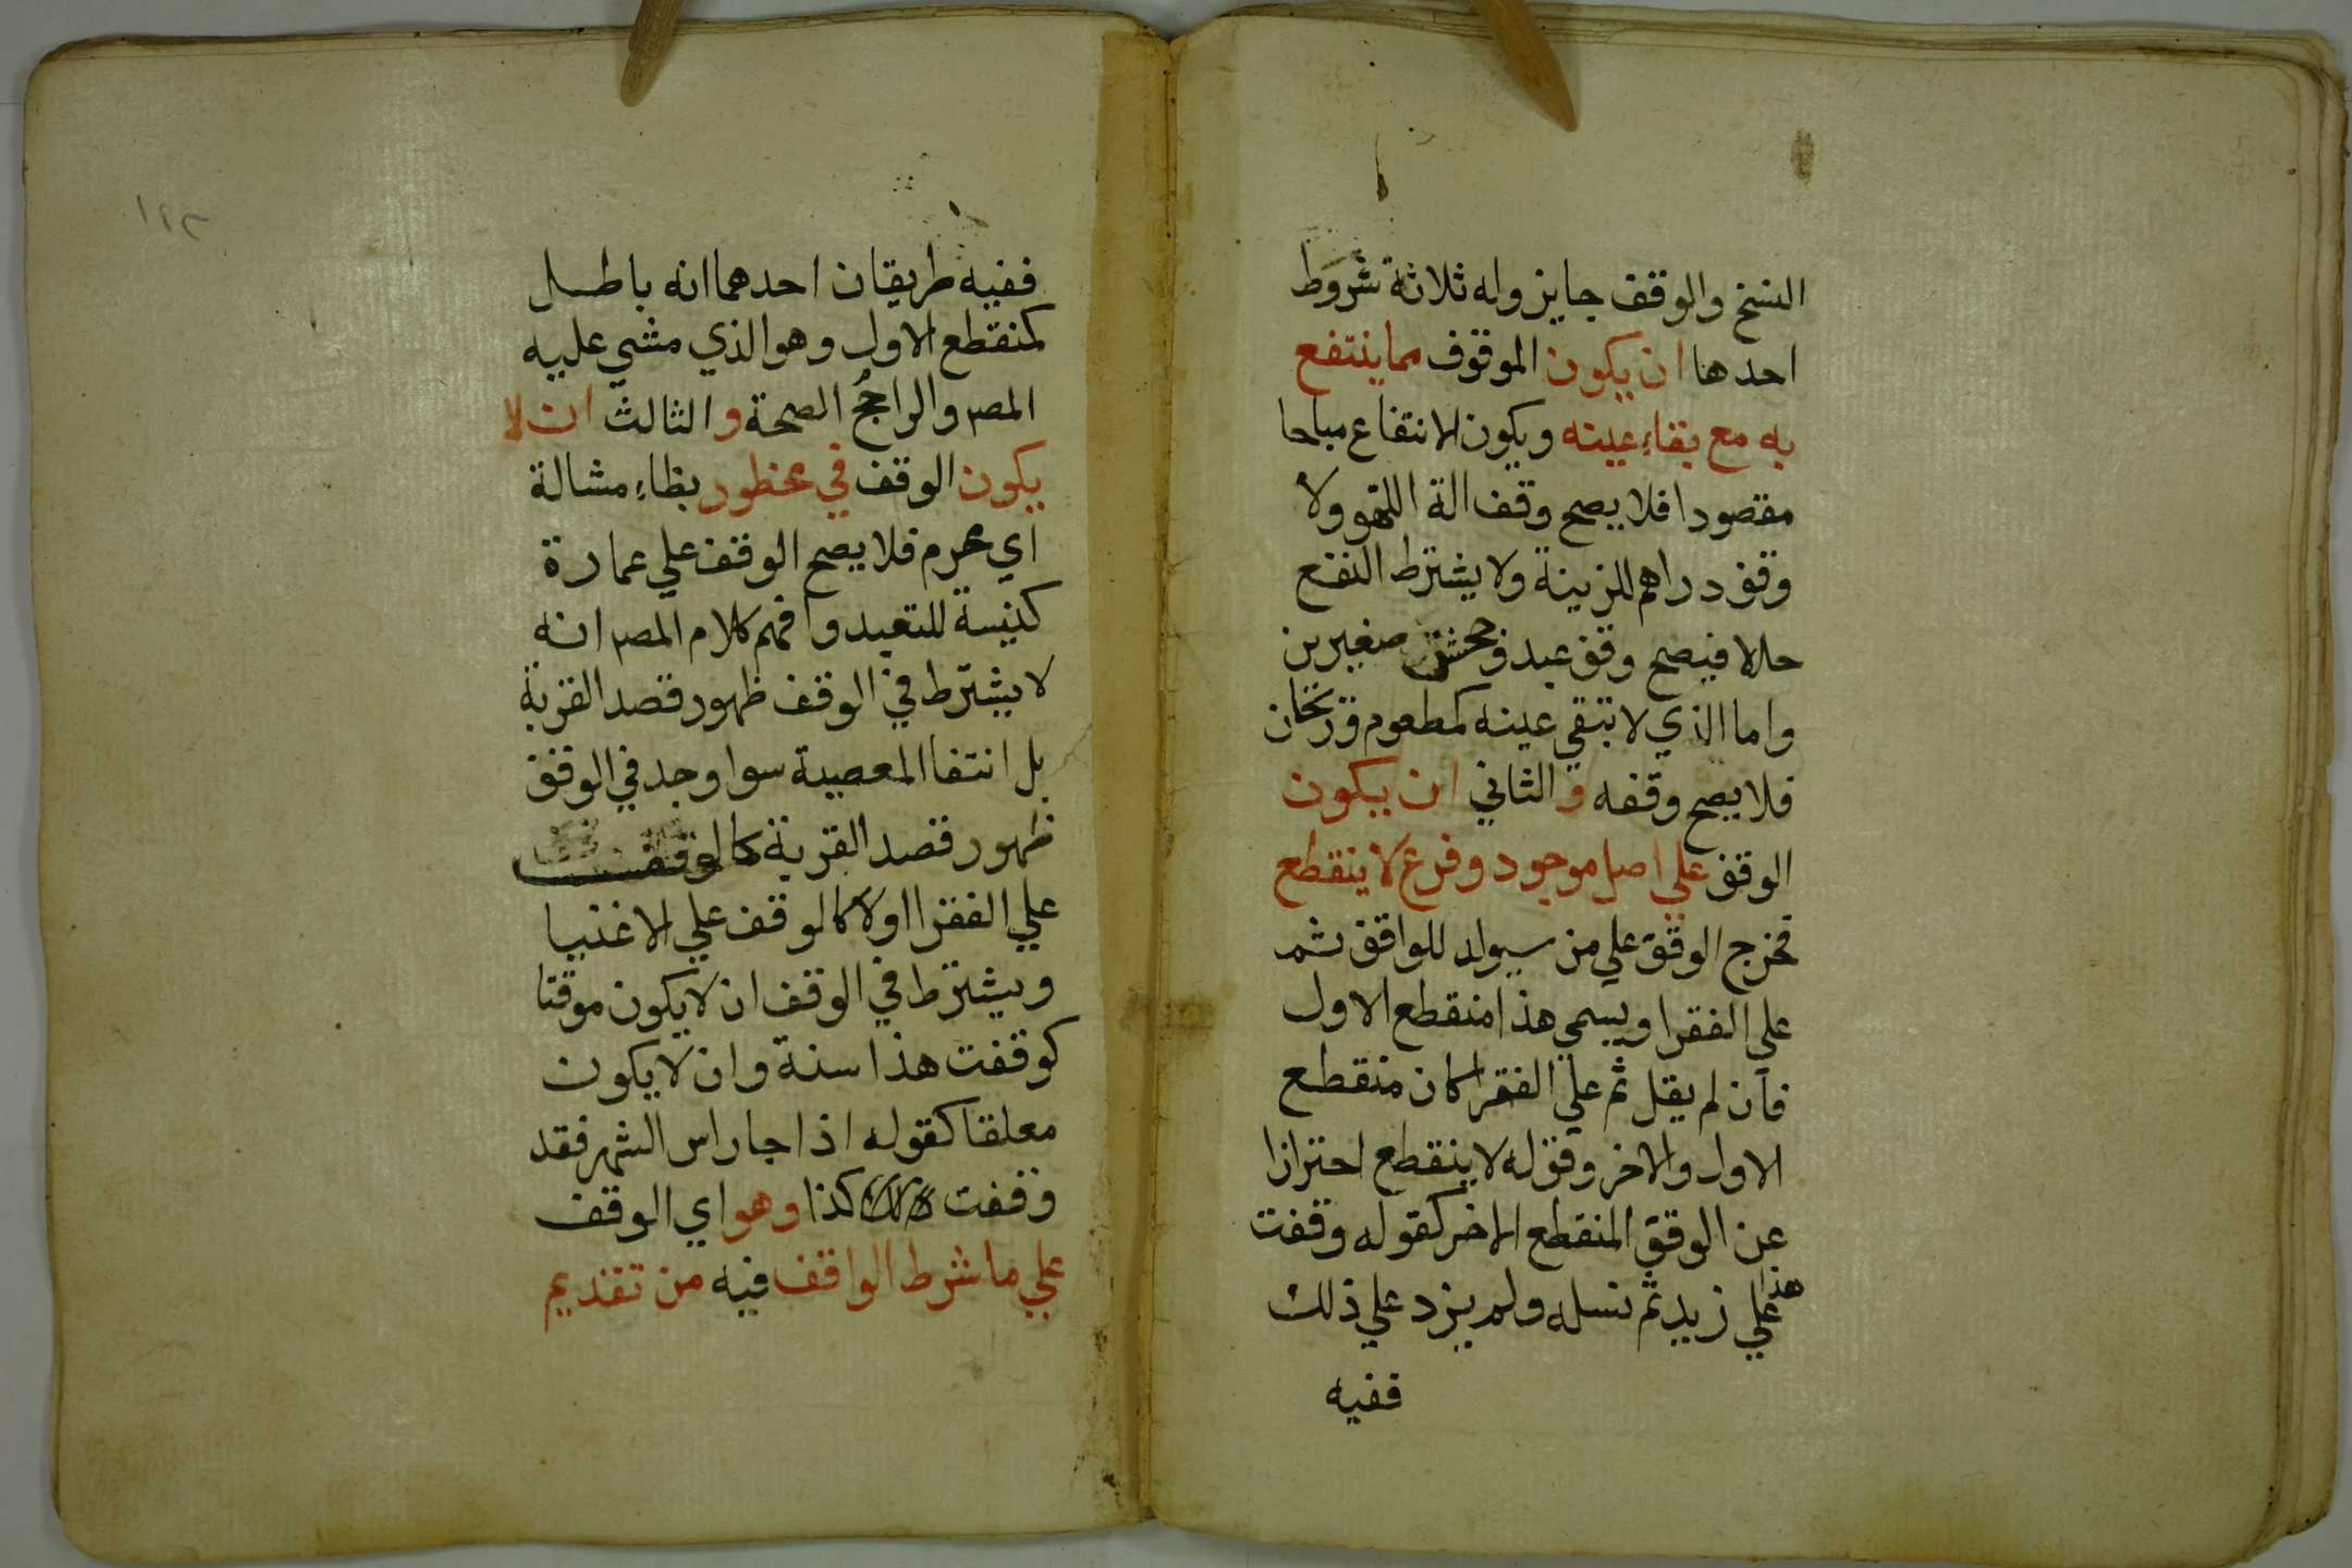 النسخ والوقف جايز وله ثلاثة شروط
احدها ان يكون الموقوف مما ينتفع
به مع بقاء عينه ويكون الانتفاع مباحا
مقصودا فلا يصح وقف الة اللهو ولا
وقف دراهم للزينة ولا يشترط النفع
حالا فيصح وقف عبد وجحش صغيرين
واما الذي لا تبقي عينه كمطعوم وريحان
فلا يصح وقفه والثاني ان يكون
الوقف علي اصل موجود وفرع لا ينقطع
فخرج الوقف علي من سيولد للواقف ثم
علي الفقرا ويسمي هذا منقطع الاول
فان لم يقل ثم علي الفقرا كان منقطع
الاول والاخر وقوله لا ينقطع احترازا
عن الوقف المنقطع الاخر كقوله وقفت
هذا علي زيد ثم نسله ولم يزد علي ذلك
ففيه
١٢٣
ففيه طريقان احدهما انه باطل
كمنقطع الاول وهو الذي مشي عليه
المص والراجح الصحة والثالث ان لا
يكون الوقف في محظور بظاء مشالة
اي محرم فلا يصح الوقف علي عمارة
كنيسة للتعبد وافهم كلام المص انه
لا يشترط في الوقف ظهور قصد القربة
بل انتفا المعصية سوا وجد في الوقف
ظهور قصد القربة كالوقف
علي الفقرا اولا كالوقف علي الاغنيا
ويشترط في الوقف ان لا يكون موقتا
كوقفت هذا سنة وان لا يكون
معلقا كقوله اذا جا راس الشهر فقد
وقفت كذا وهو اي الوقف
علي ما شرط الواقف فيه من تقديم